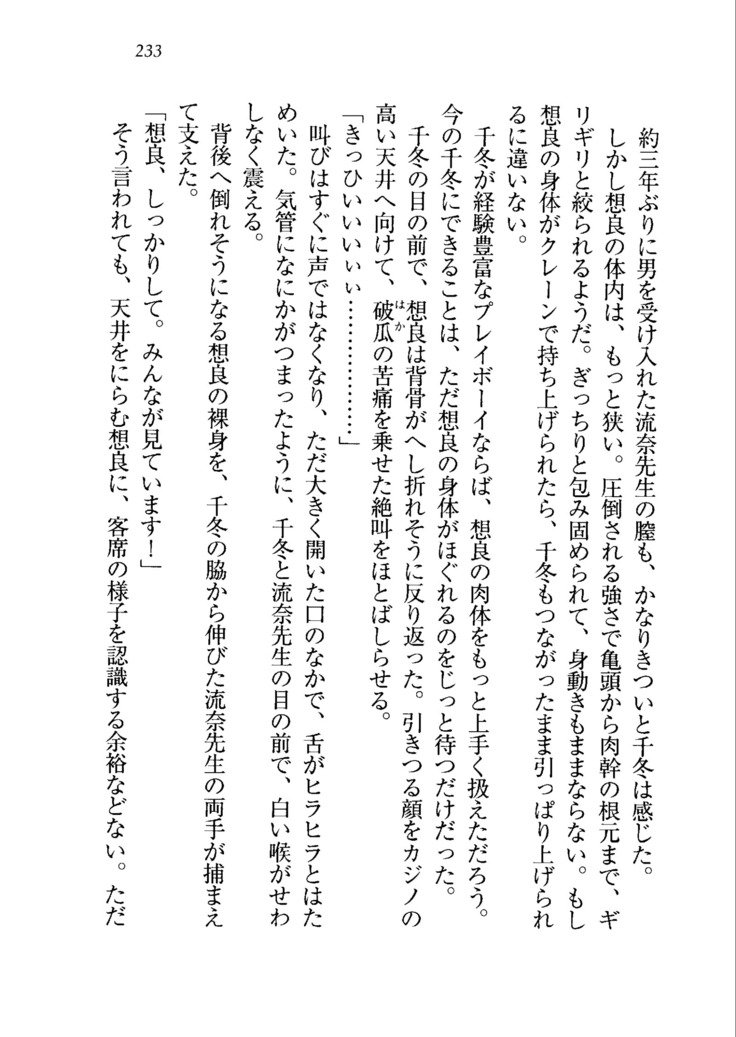 233
約三年ぶりに男を受け入れた流奈先生の膣も、かなりきついと千冬は感じた。
しかし想良の体内は、もっと狭い。圧倒される強さで亀頭から肉幹の根元まで、ギ
リギリと絞られるようだ。ぎっちりと包み固められて、身動きもままならない。もし
想良の身体がクレーンで持ち上げられたら、千冬もつながったまま引っぱり上げられ
るに違いない。
千冬が経験豊富なプレイボーイならば、想良の肉体をもっと上手く扱えただろう。
今の千冬にできることは、ただ想良の身体がほぐれるのをじっと待つだけだった。
千冬の目の前で、想良は背骨がへし折れそうに反り返った。引きつる顔をカジノの
高い天井へ向けて、破瓜はかの苦痛を乗せた絶叫をほとばしらせる。
「きっひいいいいぃぃ……………」
叫びはすぐに声ではなくなり、ただ大きく開いた口のなかで、舌がヒラヒラとはた
めいた。気管になにかがつまったように、千冬と流奈先生の目の前で、白い喉がせわ
しなく震える。
背後へ倒れそうになる想良の裸身を、千冬の脇から伸びた流奈先生の両手が捕まえ
て支えた。
「想良、しっかりして。みんなが見ています！」
そう言われても、天井をにらむ想良に、客席の様子を認識する余裕などない。ただ